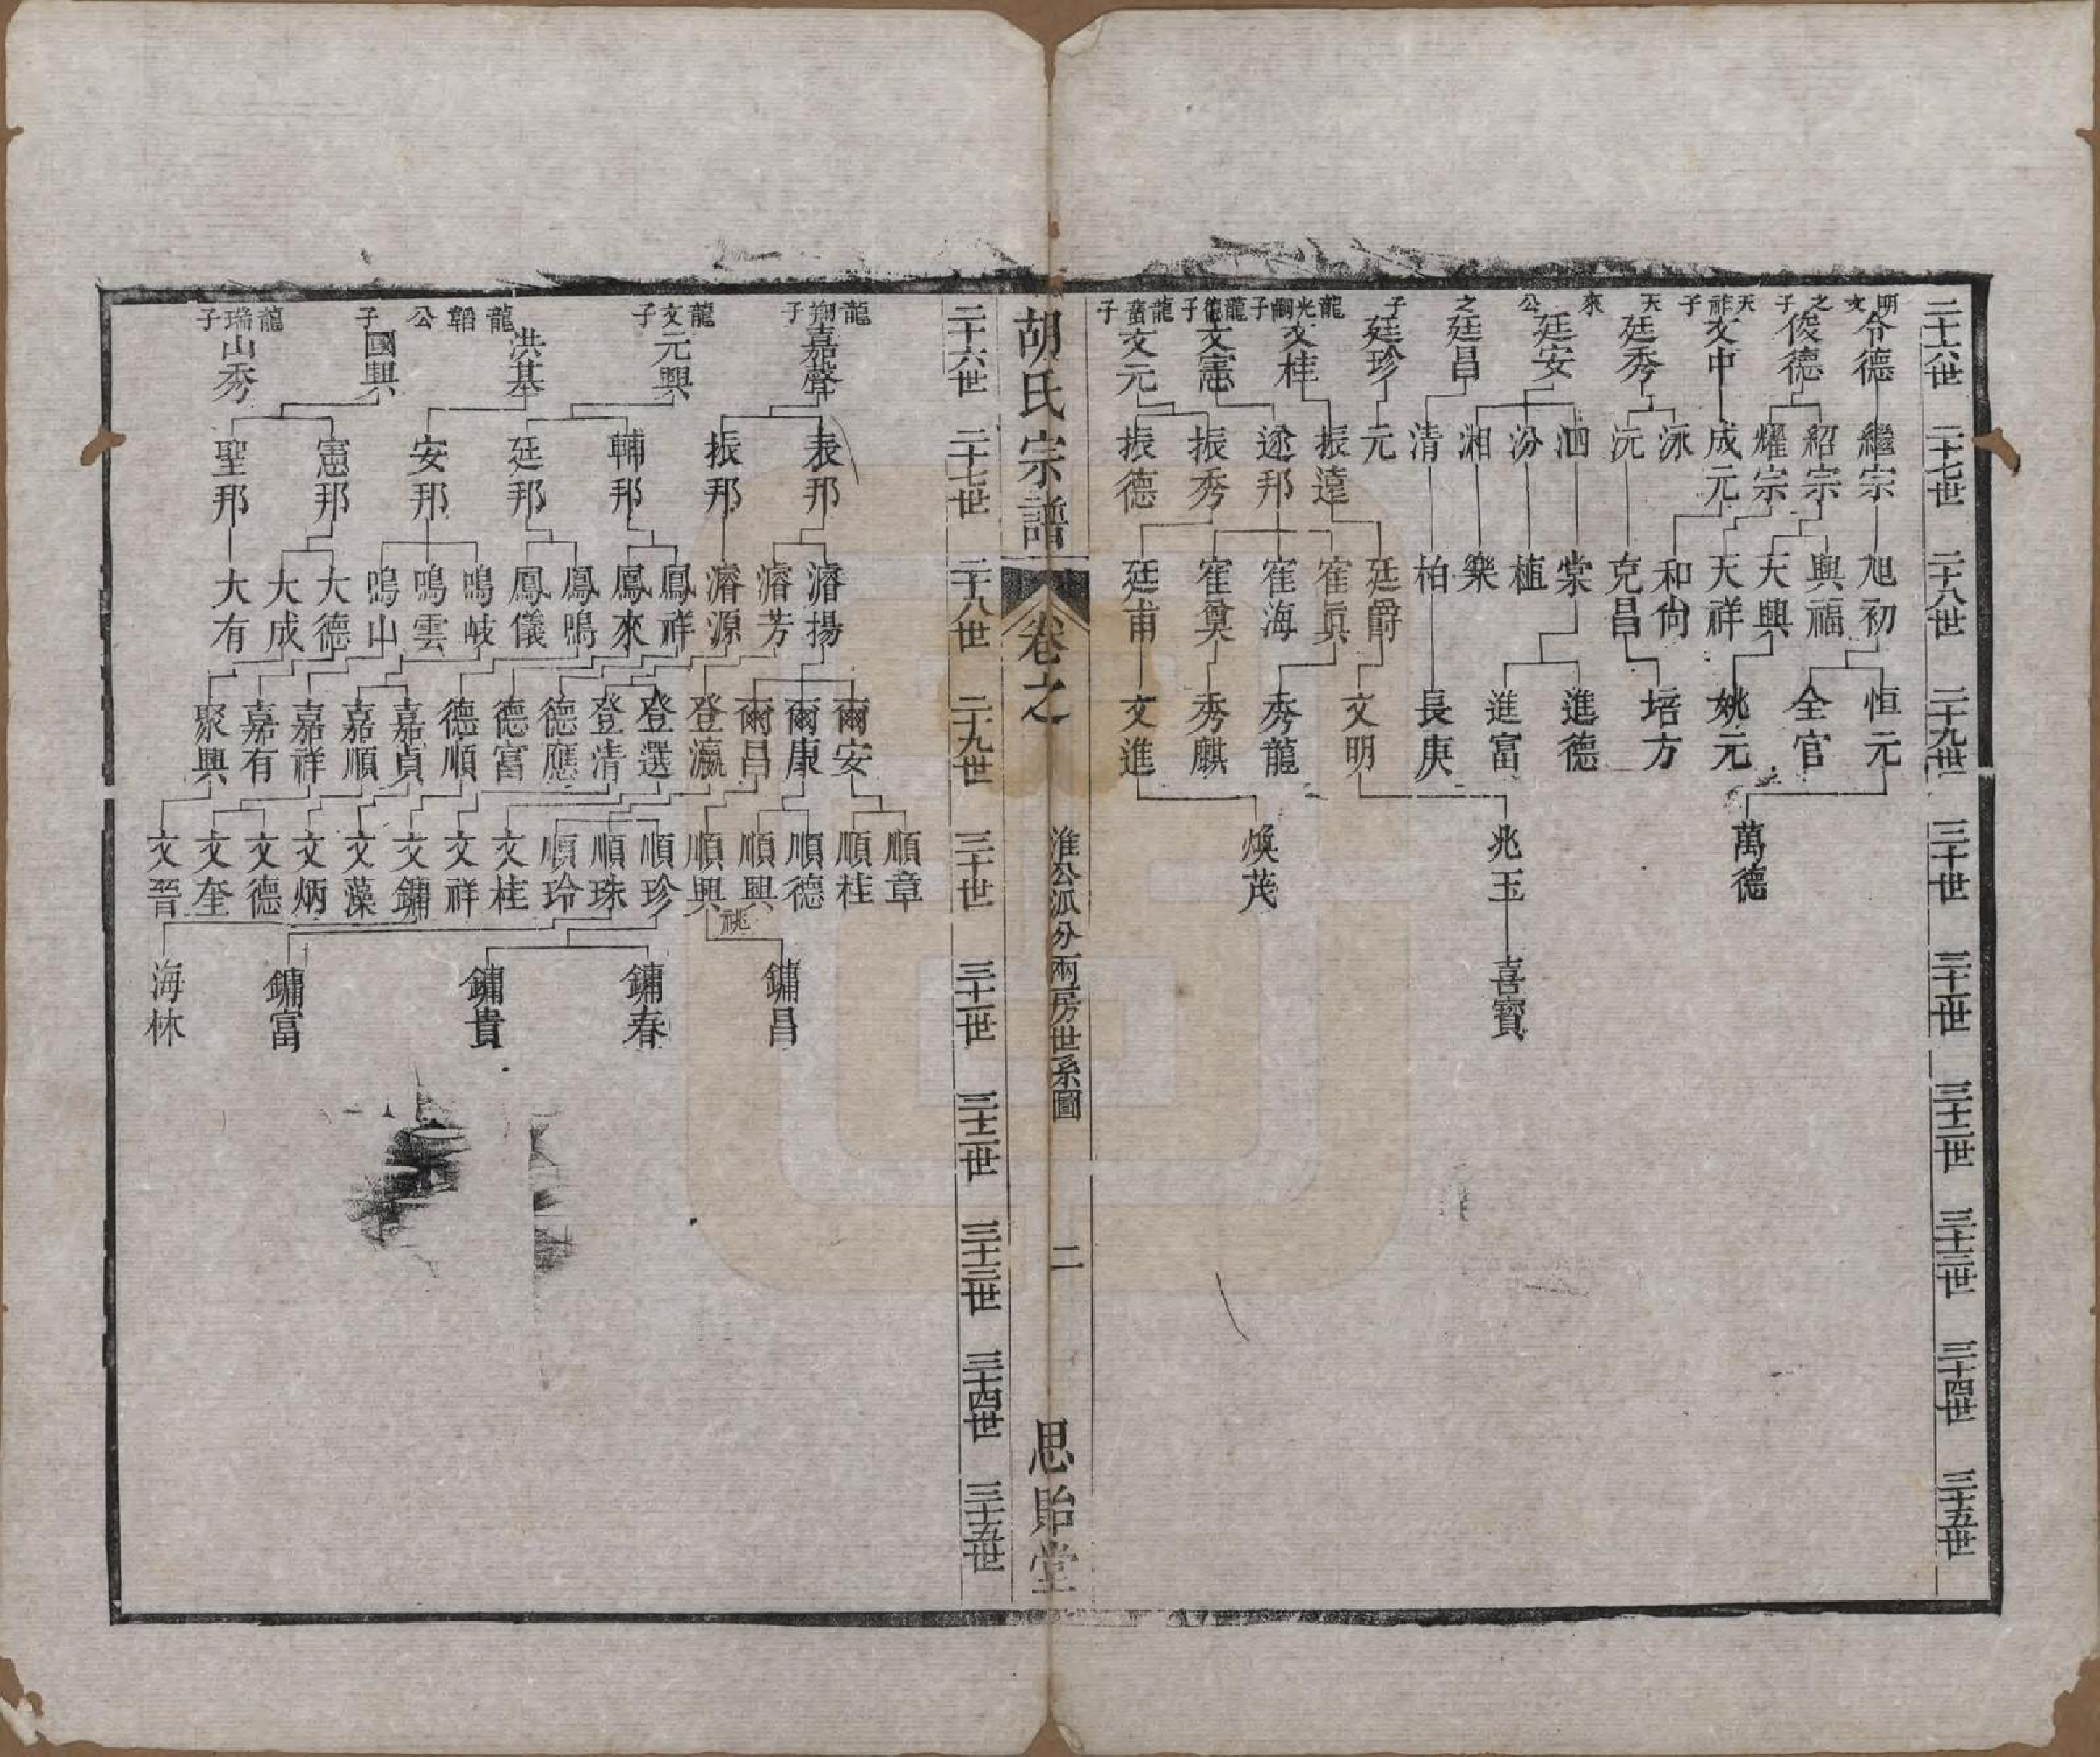 二十六世 二十七世 二十八世 二十九世 三十世 三十一世 三十二世 三十三世 三十四世 三十五世
明文之子 天祥子 天來公之子 龍光嗣子 龍德子 龍舊子
令德 俊德 文中 廷秀 廷安 廷昌 廷珍 文桂 文憲 文元
繼宗 紹宗 耀宗 成元 泳 沅 泗 汾 湘 清 元 振遠 途邦 振秀 振德
旭初 興福 天興 天祥 和尙 克昌 棠 植 樂 柏 廷爵 寉眞 寉海 寉奠 廷甫
恒元 全官 姚元 培方 進德 進富 長庚 文明 秀龍 秀麒 文進
萬德 兆玉 煥茂
喜寶
胡氏宗譜 卷之 淮公派分兩房世系圖 二 思貽堂
二十六世 二十七世 二十八世 二十九世 三十世 三十一世 三十二世 三十三世 三十四世 三十五世
龍翔子 龍文子 龍韜公子 龍瑞子
嘉聲 元興 洪基 國興 山秀
表邦 振邦 輔邦 廷邦 安邦 憲邦 聖邦
濬揚 濬芳 濬源 鳳祥 鳳來 鳳鳴 鳳儀 鳴岐 鳴雲 鳴山 大德 大成 大有
爾安 爾康 爾昌 登瀛 登選 登清 德應 德富 德順 嘉貞 嘉順 嘉祥 嘉有 聚興
順章 順桂 順德 順興 順興 順珍 順珠 順玲 文桂 文祥 文鏞 文藻 文炳 文德 文奎 文晉
祧
鏞昌 鏞春 鏞貴 鏞富 海林